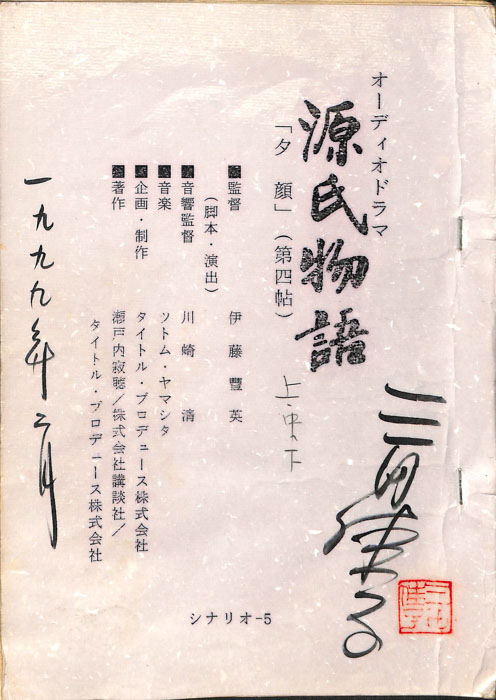 オーディオドラマ
源氏物語
「夕顔」（第四帖）
上・中・下
■監督　伊藤豊英
（脚本・演出）
■音響監督　川崎清
■音楽　ツトム・ヤマシタ
■企画・制作　タイトル・プロデュース株式会社
■著作　瀬戸内寂聴／株式会社講談社／
タイトル・プロデュース株式会社
一九九九年二月
シナリオ-5